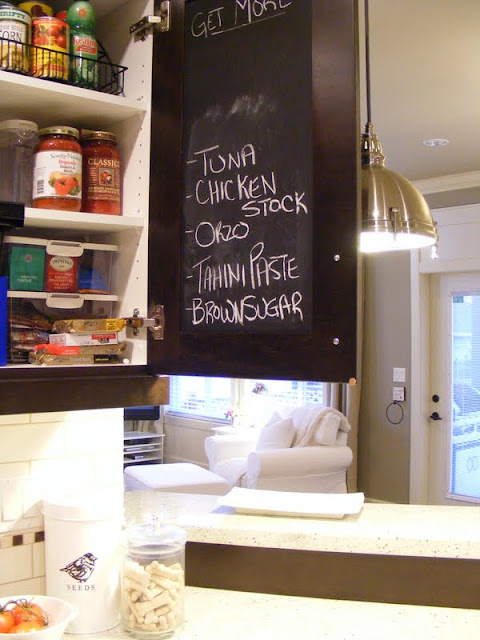 GET MORE
-TUNA
-CHICKEN
STOCK
-ORZO
-TAHINI PASTE
-BROWN SUGAR
CLASSIC
SEEDS